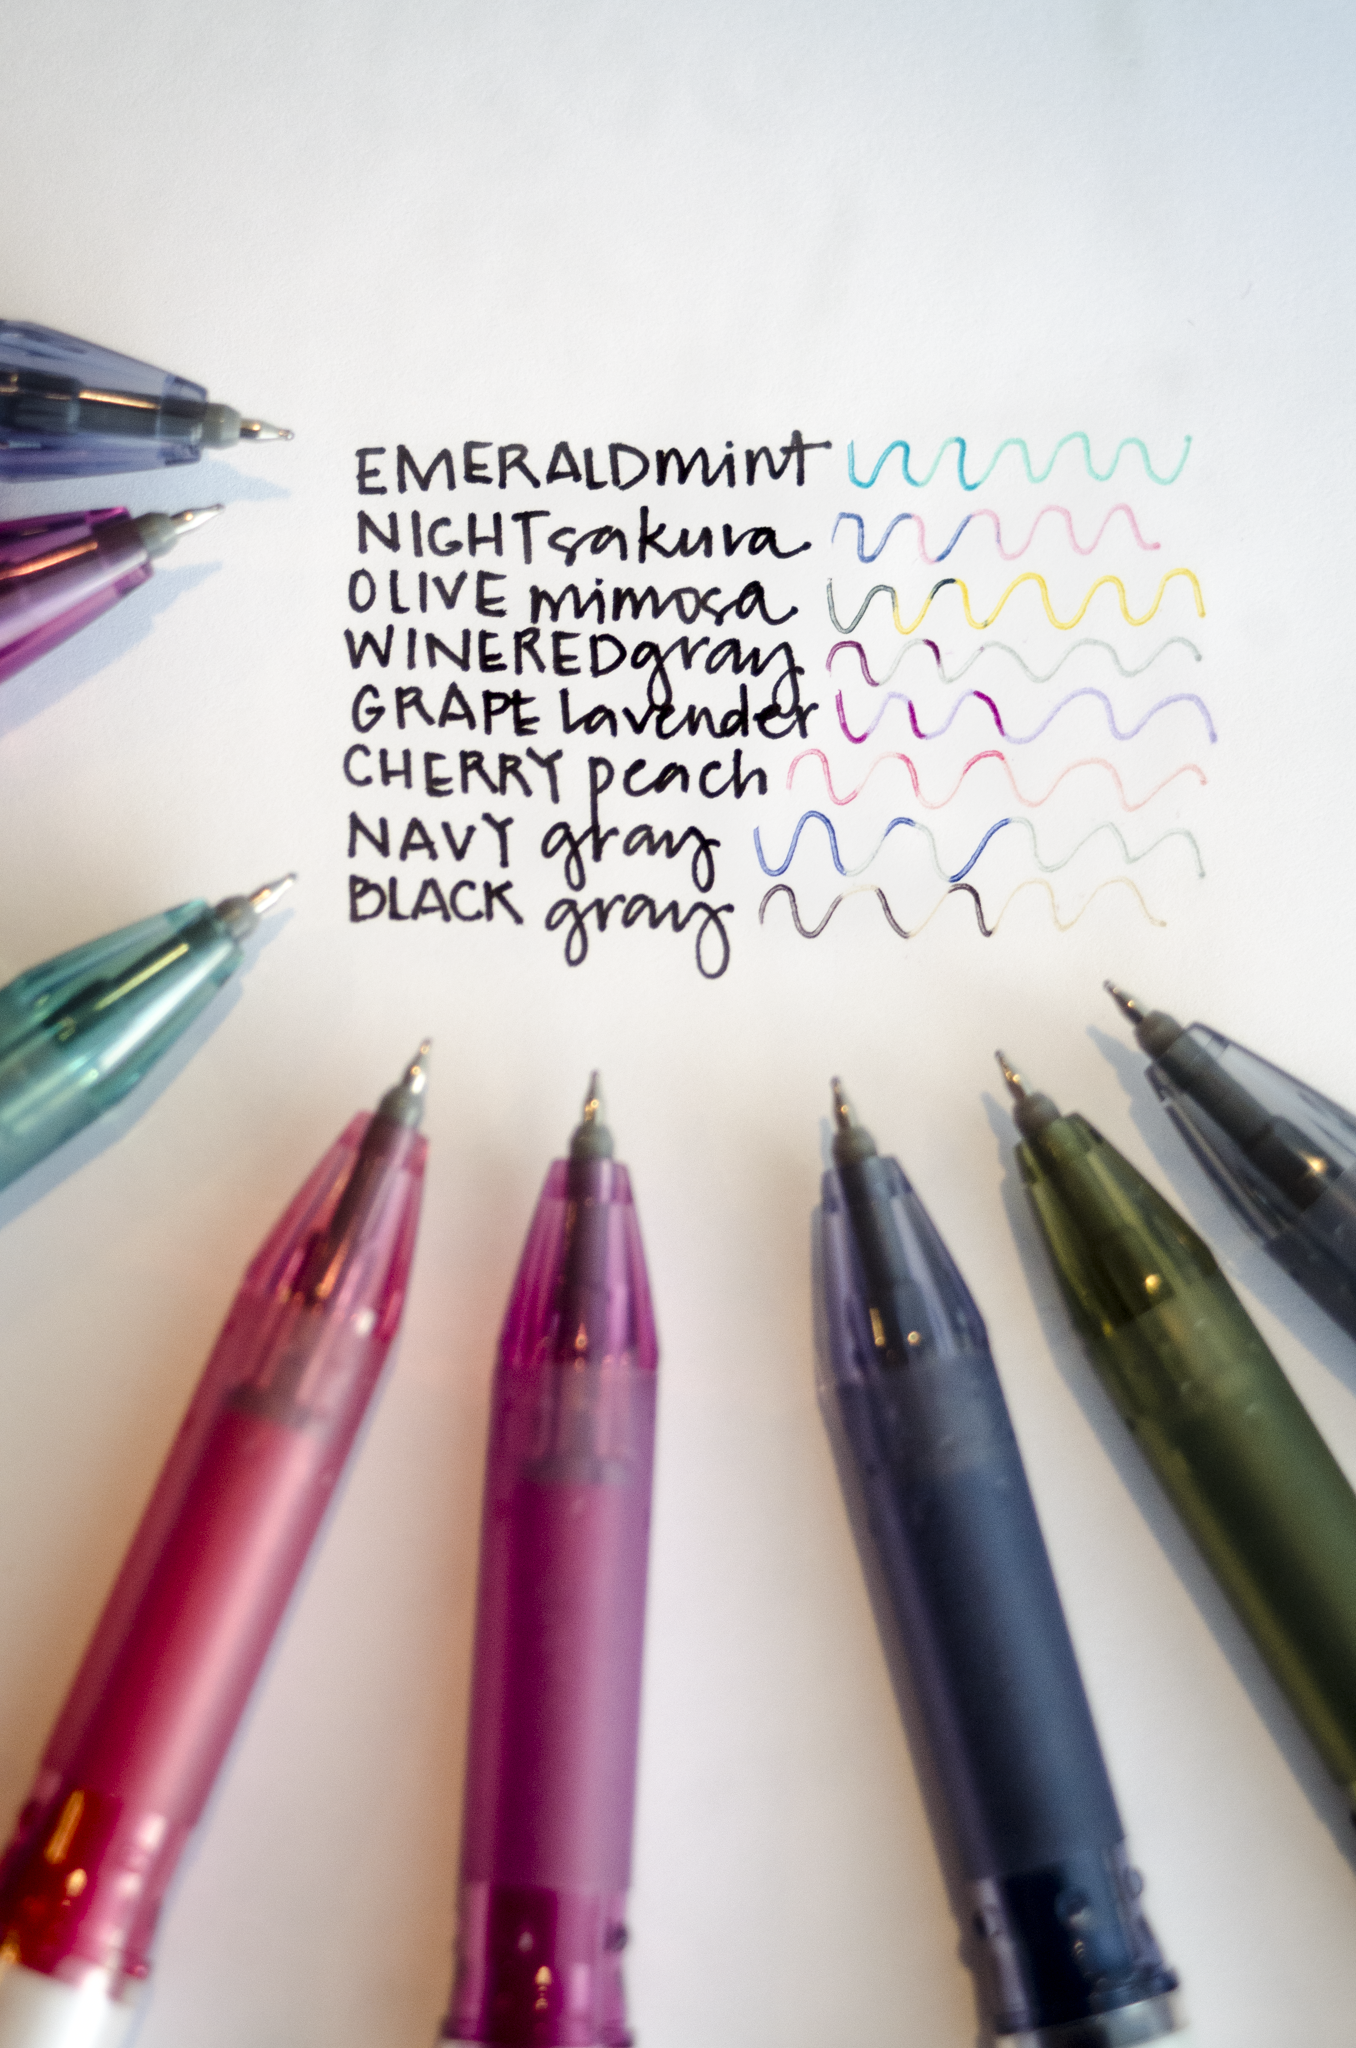 EMERALDmint
NIGHTsakura
OLIVE mimosa
WINEREDgray
GRAPE lavender
CHERRY peach
NAVY gray
BLACK gray